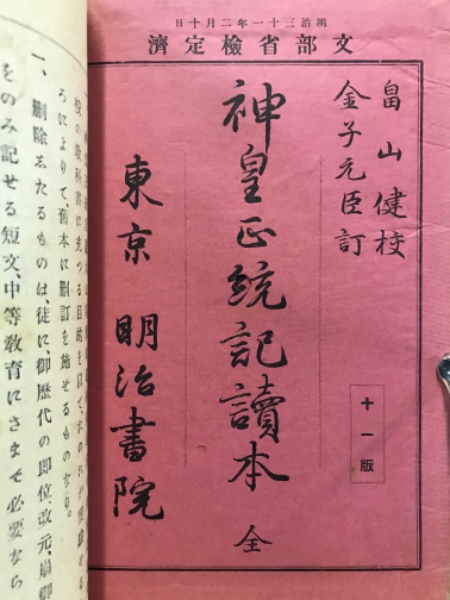 明治三十一年二月十日
文部省檢定濟
畠山健校
金子元臣訂
神皇正統記讀本 全
十一版
東京 明治書院
ろによりて、舊本に刪訂を施せるものなり。
一、刪除ゑたるものは、徒に、御歴代の即位、改元、崩御
をのみ記せる短文、中等教育にさまで必要なら